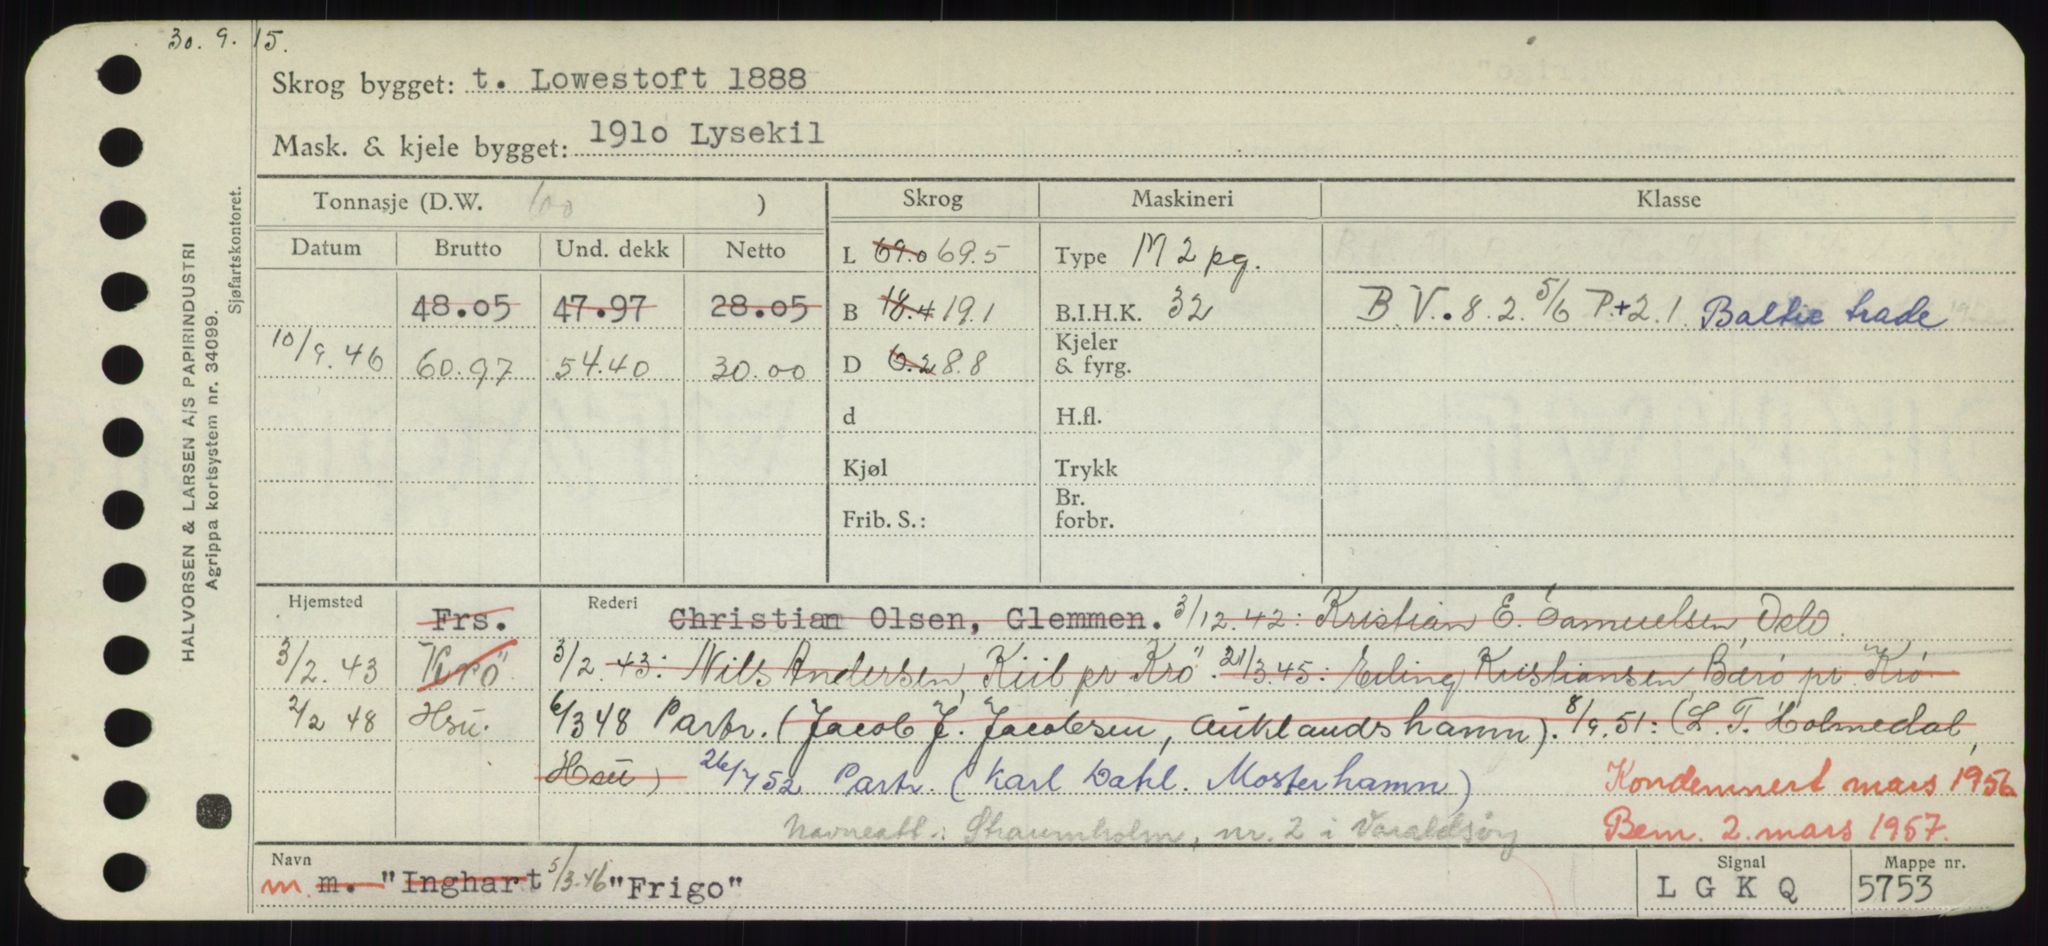 30. 9. 15.
Skrog bygget: t. Lowestoft 1888
Mask. & kjele bygget: 191o Lysekil
HALVORSEN & LARSEN A/S PAPIRINDUSTRI
Agrippa kortsystem nr. 34099.
Sjøfartskontoret.
Tonnasje (D.W. 100 ) Skrog Maskineri Klasse
Datum Brutto Und. dekk Netto
L 69.0 69.5 Type M 2 pg.
48.05 47.97 28.05 B 18.4 19.1 B.I.H.K. 32 B.V. 8.2. 5/6 P.+2.1. Baltic trade
10/9.46 60.97 54.40 30.00 D 6.2 8.8 Kjeler & fyrg.
d H.fl.
Kjøl Trykk
Frib. S.: Br. forbr.
Hjemsted Frs. Rederi Christian Olsen, Glemmen. 3/12.42: Kristian E. Samuelsen, Oslo.
3/2.43 "Krö" 3/2.43: Nils Andersen, Kiil pr Krö". 21/3.45: Erling Kristiansen Bærö pr. Krö.
2/2 48 Hsu. 6/3 48 Partr. (Jacob J. Jacobsen, Auklandshamn). 8/9.51: (L. T. Holmedal,
Hsu) 26/7 52 Partr. (Karl Dahl. Mosterhamn) Kondemnert mars 1956
Navneatt.: Straumholm, nr. 2 i Varaldsøy Bem. 2. mars 1957.
Navn Signal Mappe nr.
m m. "Inghart 5/3.46 "Frigo" L G K Q 5753